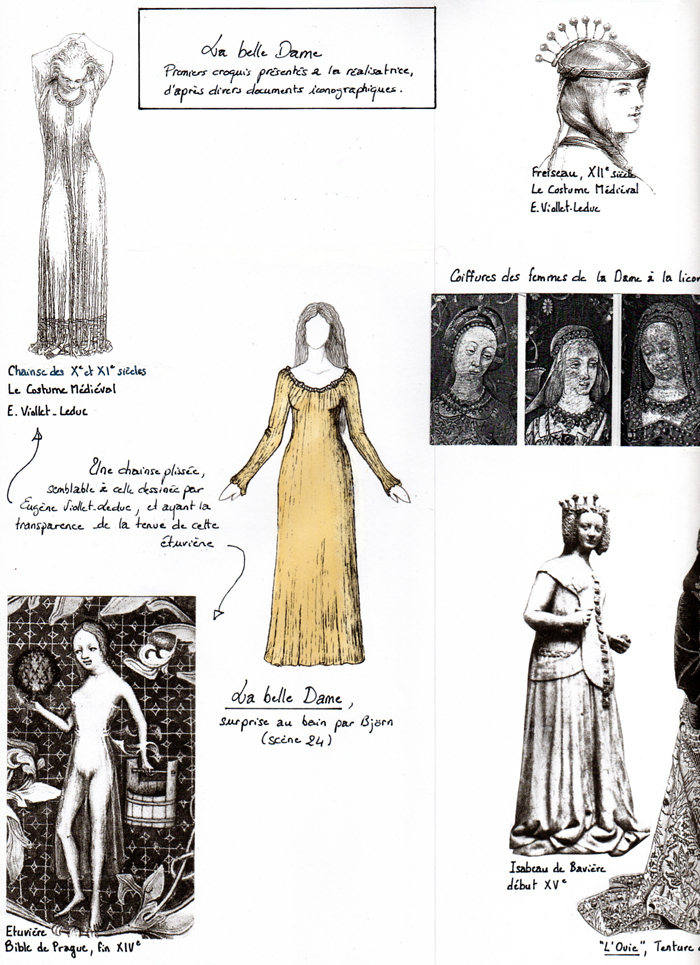 La belle Dame
Premiers croquis présentés à la réalisatrice,
d'après divers documents iconographiques.
Freiseau, XIIe siècle
Le Costume Médiéval
E. Viollet-Leduc
Coiffures des femmes de la Dame à la licor
Chainse des Xe et XIe siècles
Le Costume Médiéval
E. Viollet-Leduc
Une chainse plissée,
semblable à celle dessinée par
Eugène Viollet-Leduc, et ayant la
transparence de la tenue de cette
étuvière
La belle Dame,
surprise au bain par Björn
(scène 24)
Isabeau de Bavière
début XVe
Etuvière
Bible de Prague, fin XIVe
"L'Ouïe", Tenture